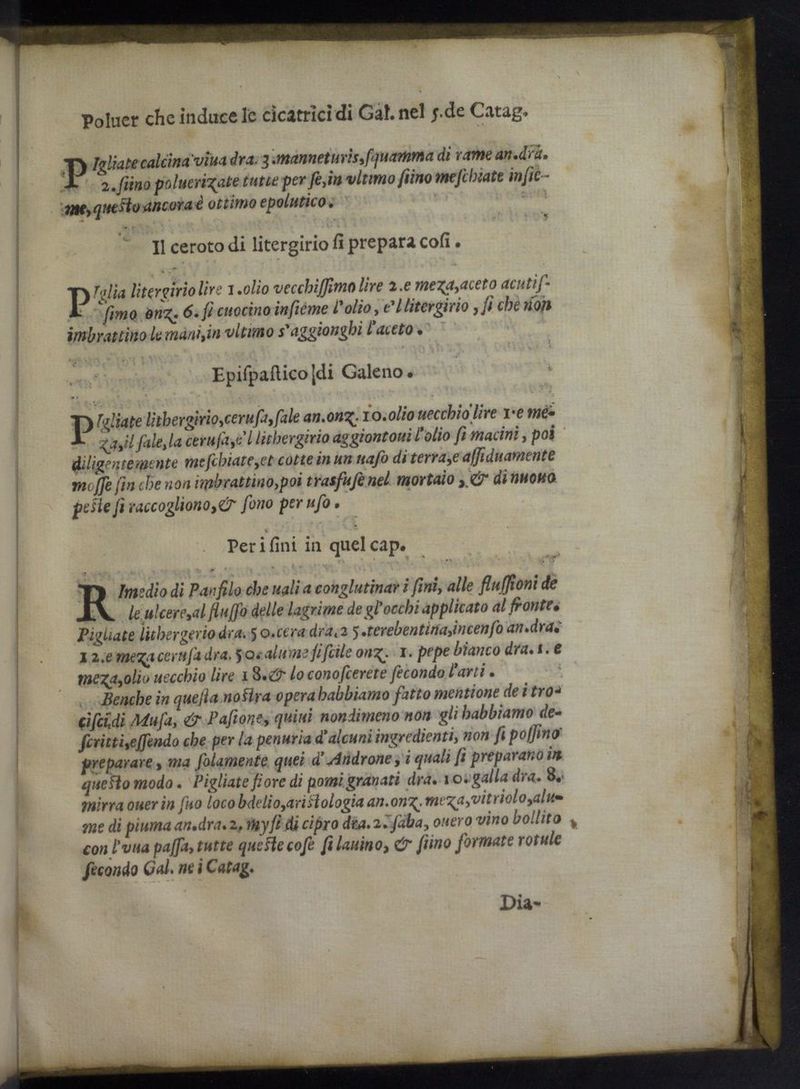 Poluer che induce le cicatrici di Gal. nel 5.de Catag.
PIgliate calcina viua dra. 3 .manneturis,squamma di rame an.dra.
2.siino poluerizate tutte per se,in vltimo siino meschiate insie-
me,questo ancora è ottimo epolutico.
Il ceroto di litergirio si prepara cosi.
PIglia litergirio lire 1.olio vecchissimo lire 2.e meza,aceto acutis-
simo onz. 6. si cuocino insieme l'olio, e'l litergirio , si che non
imbrattino le mani,in vltimo s'aggionghi l'aceto.
Epispastico di Galeno.
PIgliate lithergirio,cerusa,sale an.onz. 10.olio uecchio lire 1.e me-
za,il sale,la cerusa,e'l lithergirio aggiontoui l'olio si macini, poi
diligentemente meschiate,et cotte in un uaso di terra,e assiduamente
mosse sin che non imbrattino,poi trasfuse nel mortaio , & di nuouo
peste si raccogliono,& sono per uso.
Per i sini in quel cap.
RImedio di Panfilo che uali a conglutinar i sini, alle flussioni de
le ulcere,al flusso delle lagrime de gl'occhi applicato al fronte.
Pigliate lithergerio dra. 50.cera dra.25.terebentina,incenso an.dra.
12.e meza cerusa dra. 50.alume fiscile onz. 1. pepe bianco dra. 1. e
meza,olio uecchio lire 18.& lo conoscerete secondo l'arti.
Benche in questa nostra opera habbiamo fatto mentione de i tro-
cisci,di Musa, & Pasione, quiui nondimeno non gli habbiamo de-
scritti,essendo che per la penuria d'alcuni ingredienti, non si possino
preparare, ma solamente quei d'Androne, i quali si preparano in
questo modo. Pigliate fiore di pomi granati dra. 10.galla dra. 8.
mirra ouer in suo loco bdelio,aristologia an.onz. meza,vitriolo,alu-
me di piuma an.dra. 2. mysi di cipro dra. 2. faba, ouero vino bollito
con l'vua passa, tutte queste cose si lauino, & siino formate rotule
secondo Gal. ne i Catag.
Dia-